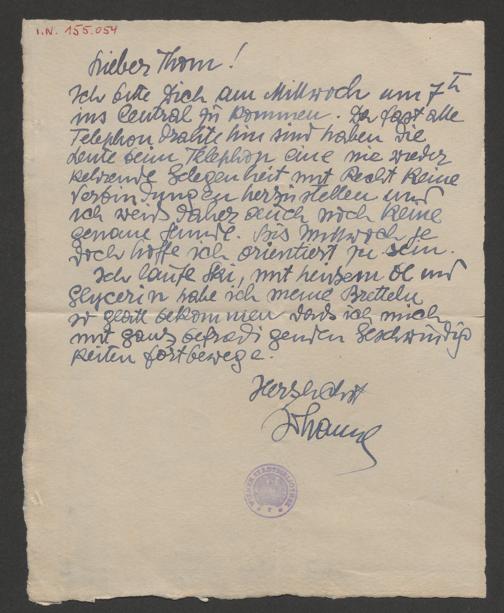 I.N. 155.054
Lieber Thom!
Ich bitte Dich am Mittwoch um 7h
ins Central zu kommen. Da fast alle
Telephondrähte hin sind haben die
Leute beim Telephon eine nie wieder
kehrende Gelegenheit mit Recht keine
Verbindungen herzustellen und
ich weis daher auch noch keine
genaue Stunde. Bis Mittwoch je
doch hoffe ich orientiert zu sein.
Ich laufe Ski, mit heissem Öl und
Glycerin habe ich meine Bretteln
so glatt bekommen dass ich mich
mit ganz befriedigenden Geschwindig
keiten fortbewege.
Herzlichst
WIENER STADTBIBLIOTHEK